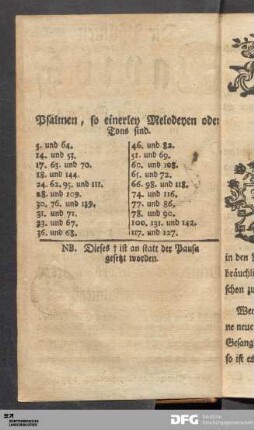 Psalmen, so einerley Melodeyen oder
Tons sind.
5. und 64.
14. und 53.
17. 63. und 70.
18. und 144.
24. 62. 95. und 111.
28. und 109.
30. 76. und 139.
31. und 71.
33. und 67.
36. und 68.
46. und 82.
51. und 69.
60. und 108.
65. und 72.
66. 98. und 118.
74. und 116.
77. und 86.
78. und 90.
100. 131. und 142.
117. und 127.
NB. Dieses † ist an statt der Pausa
gesetzt worden.
in den
bräuchli
schen zu
Wer
ne neue
Gesang
so ist es
DFG